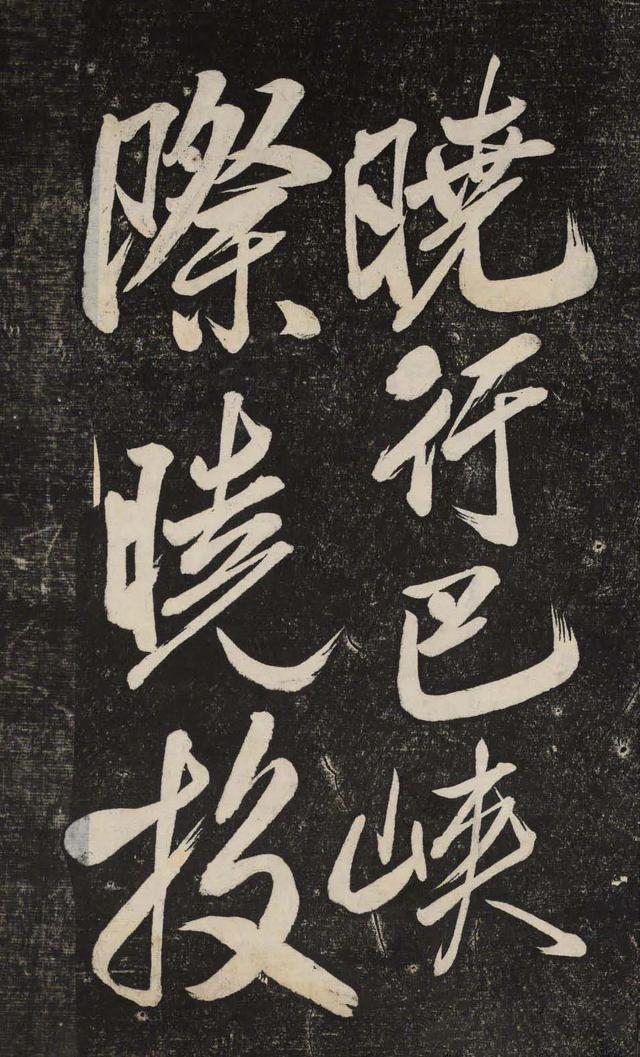 曉行巴峽
際曉投